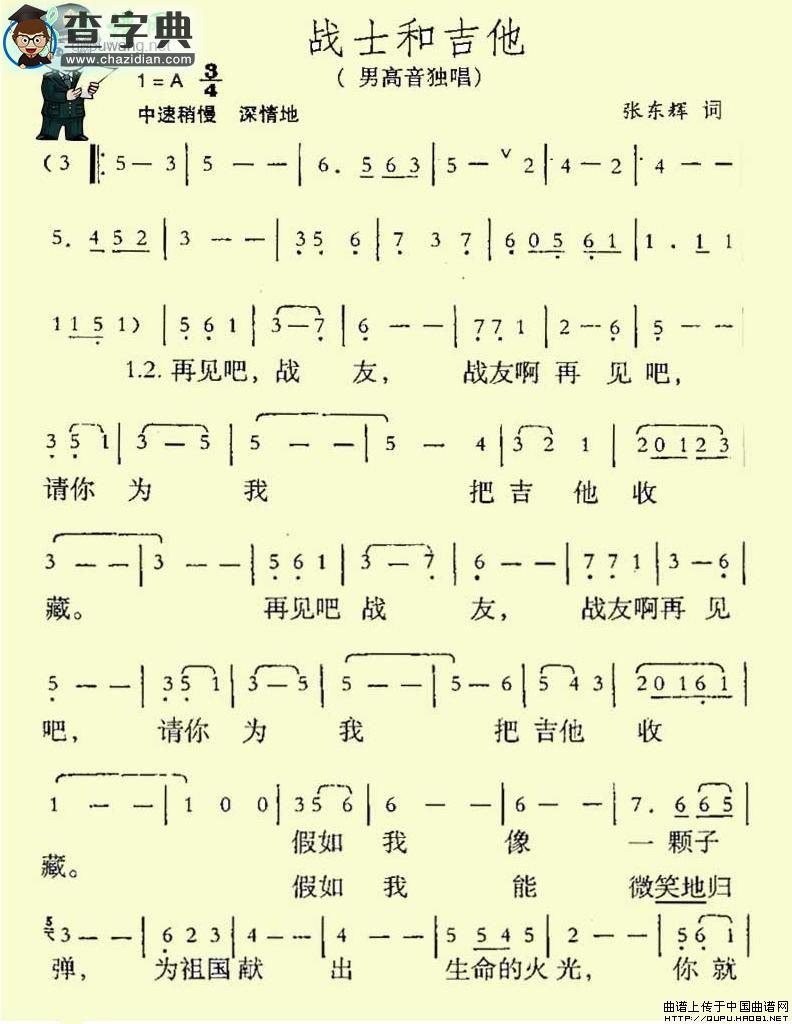 查字典
www.chazidian.com
战士和吉他
(男高音独唱)
1=A 3/4
中速稍慢 深情地
张东辉 词
(3 ‖: 5—3 | 5—— | 6. 5 6 3 | 5—ˇ2 | 4—2 | 4——
5. 4 5 2 | 3—— | 3 5 6 | 7 3 7 | 6 0 5 6 1 | 1. 1 1
1 1 5 1) | 5 6 1 | 3—7 | 6—— | 7 7 1 | 2—6 | 5——
1.2.再见吧，战 友， 战友啊 再 见 吧，
3 5 1 | 3—5 | 5—— | 5—4 | 3 2 1 | 2 0 1 2 3
请你 为 我 把 吉 他 收
3—— | 3—— | 5 6 1 | 3—7 | 6—— | 7 7 1 | 3—6 |
藏。 再见吧 战 友， 战友啊再 见
5—— | 3 5 1 | 3—5 | 5—— | 5—6 | 5 4 3 | 2 0 1 6 1 |
吧， 请你 为 我 把 吉他 收
1—— | 1 0 0 | 3 5 6 | 6—— | 6—— | 7. 6 6 5
假如 我 像 一 颗子
藏。
假如 我 能 微笑地归
5 3—— | 6 2 3 | 4—— | 4—— | 5 5 4 5 | 2—— | 5 6 1 |
弹， 为祖国献 出 生命的火 光， 你 就
曲谱上传于中国曲谱网
HTTP://QUPU.HAO81.NET